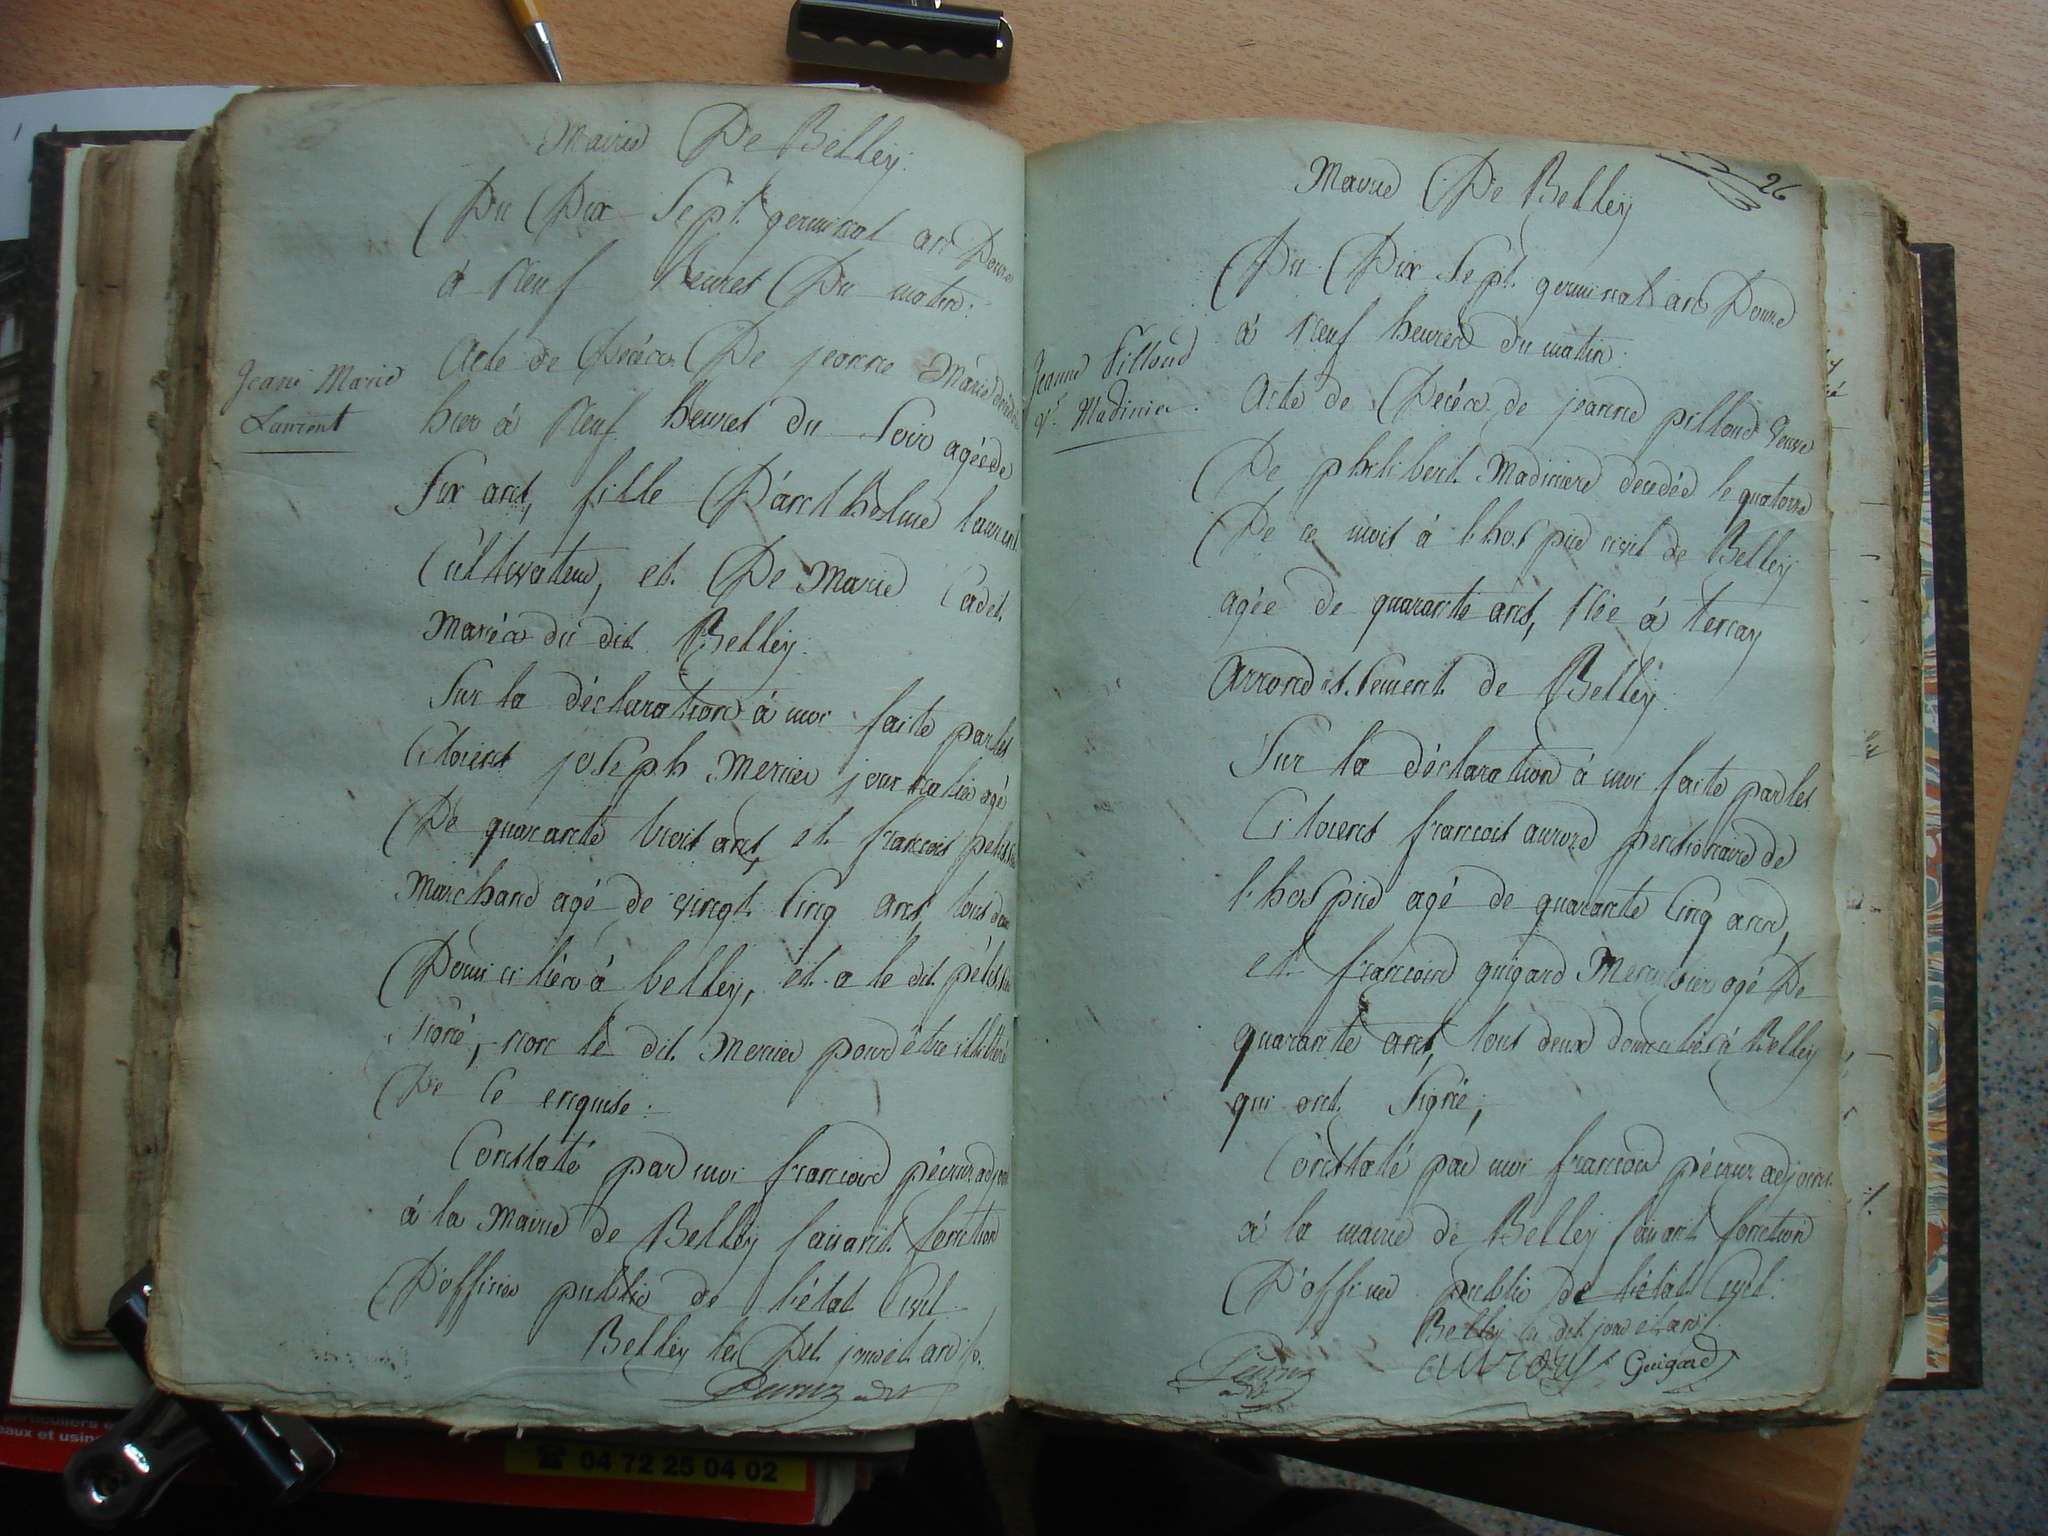 Mairie De Belley.
Du Dix Sept germinal an Douze
à neuf heures Du matin.
Jeanne Marie
Laurent
Acte de Décès De jeanne Marie décédée
hier à neuf heures du soir agée de
six ans, fille D'anthelme laurent
Cultivateur, et De Marie Cadet
Mariés du dit Belley.
Sur la déclaration à moi faite par les
Citoiens joseph Mercier journalier agé
De quarante trois ans, et françois
Marchand agé de vingt cinq ans, tous deux
Domiciliés à belley, et a le dit
signé, non le dit Mercier pour être illitéré
De ce enquise.
Constaté par moi françois adjoint
à la Mairie de Belley faisant fonction
D'officier public de l'état Civil.
Belley les Dit jour et an
26
Mairie De Belley
Du Dix Sept germinal an Douze
à neuf heures du matin.
Jeanne Pilloud
vᵉ Madinier.
Acte de Décès de jeanne pilloud Veuve
De philibert Madiniere décédée le quatorze
De ce mois à l'hospice civil de Belley
agée de quarante ans, née à
Arrondissement de Belley.
Sur la déclaration à moi faite par les
Citoiens francois pensionaire de
l'hospice agé de quarante cinq ans,
et francois guigard Menuisier agé De
quarante ans, tous deux domiciliés à Belley
qui ont Signé,
Constaté par moi francois adjoint
à la mairie de Belley faisant fonction
D'officier public de l'état Civil.
Belley les dit jour et an.
Guigard
04 72 25 04 02